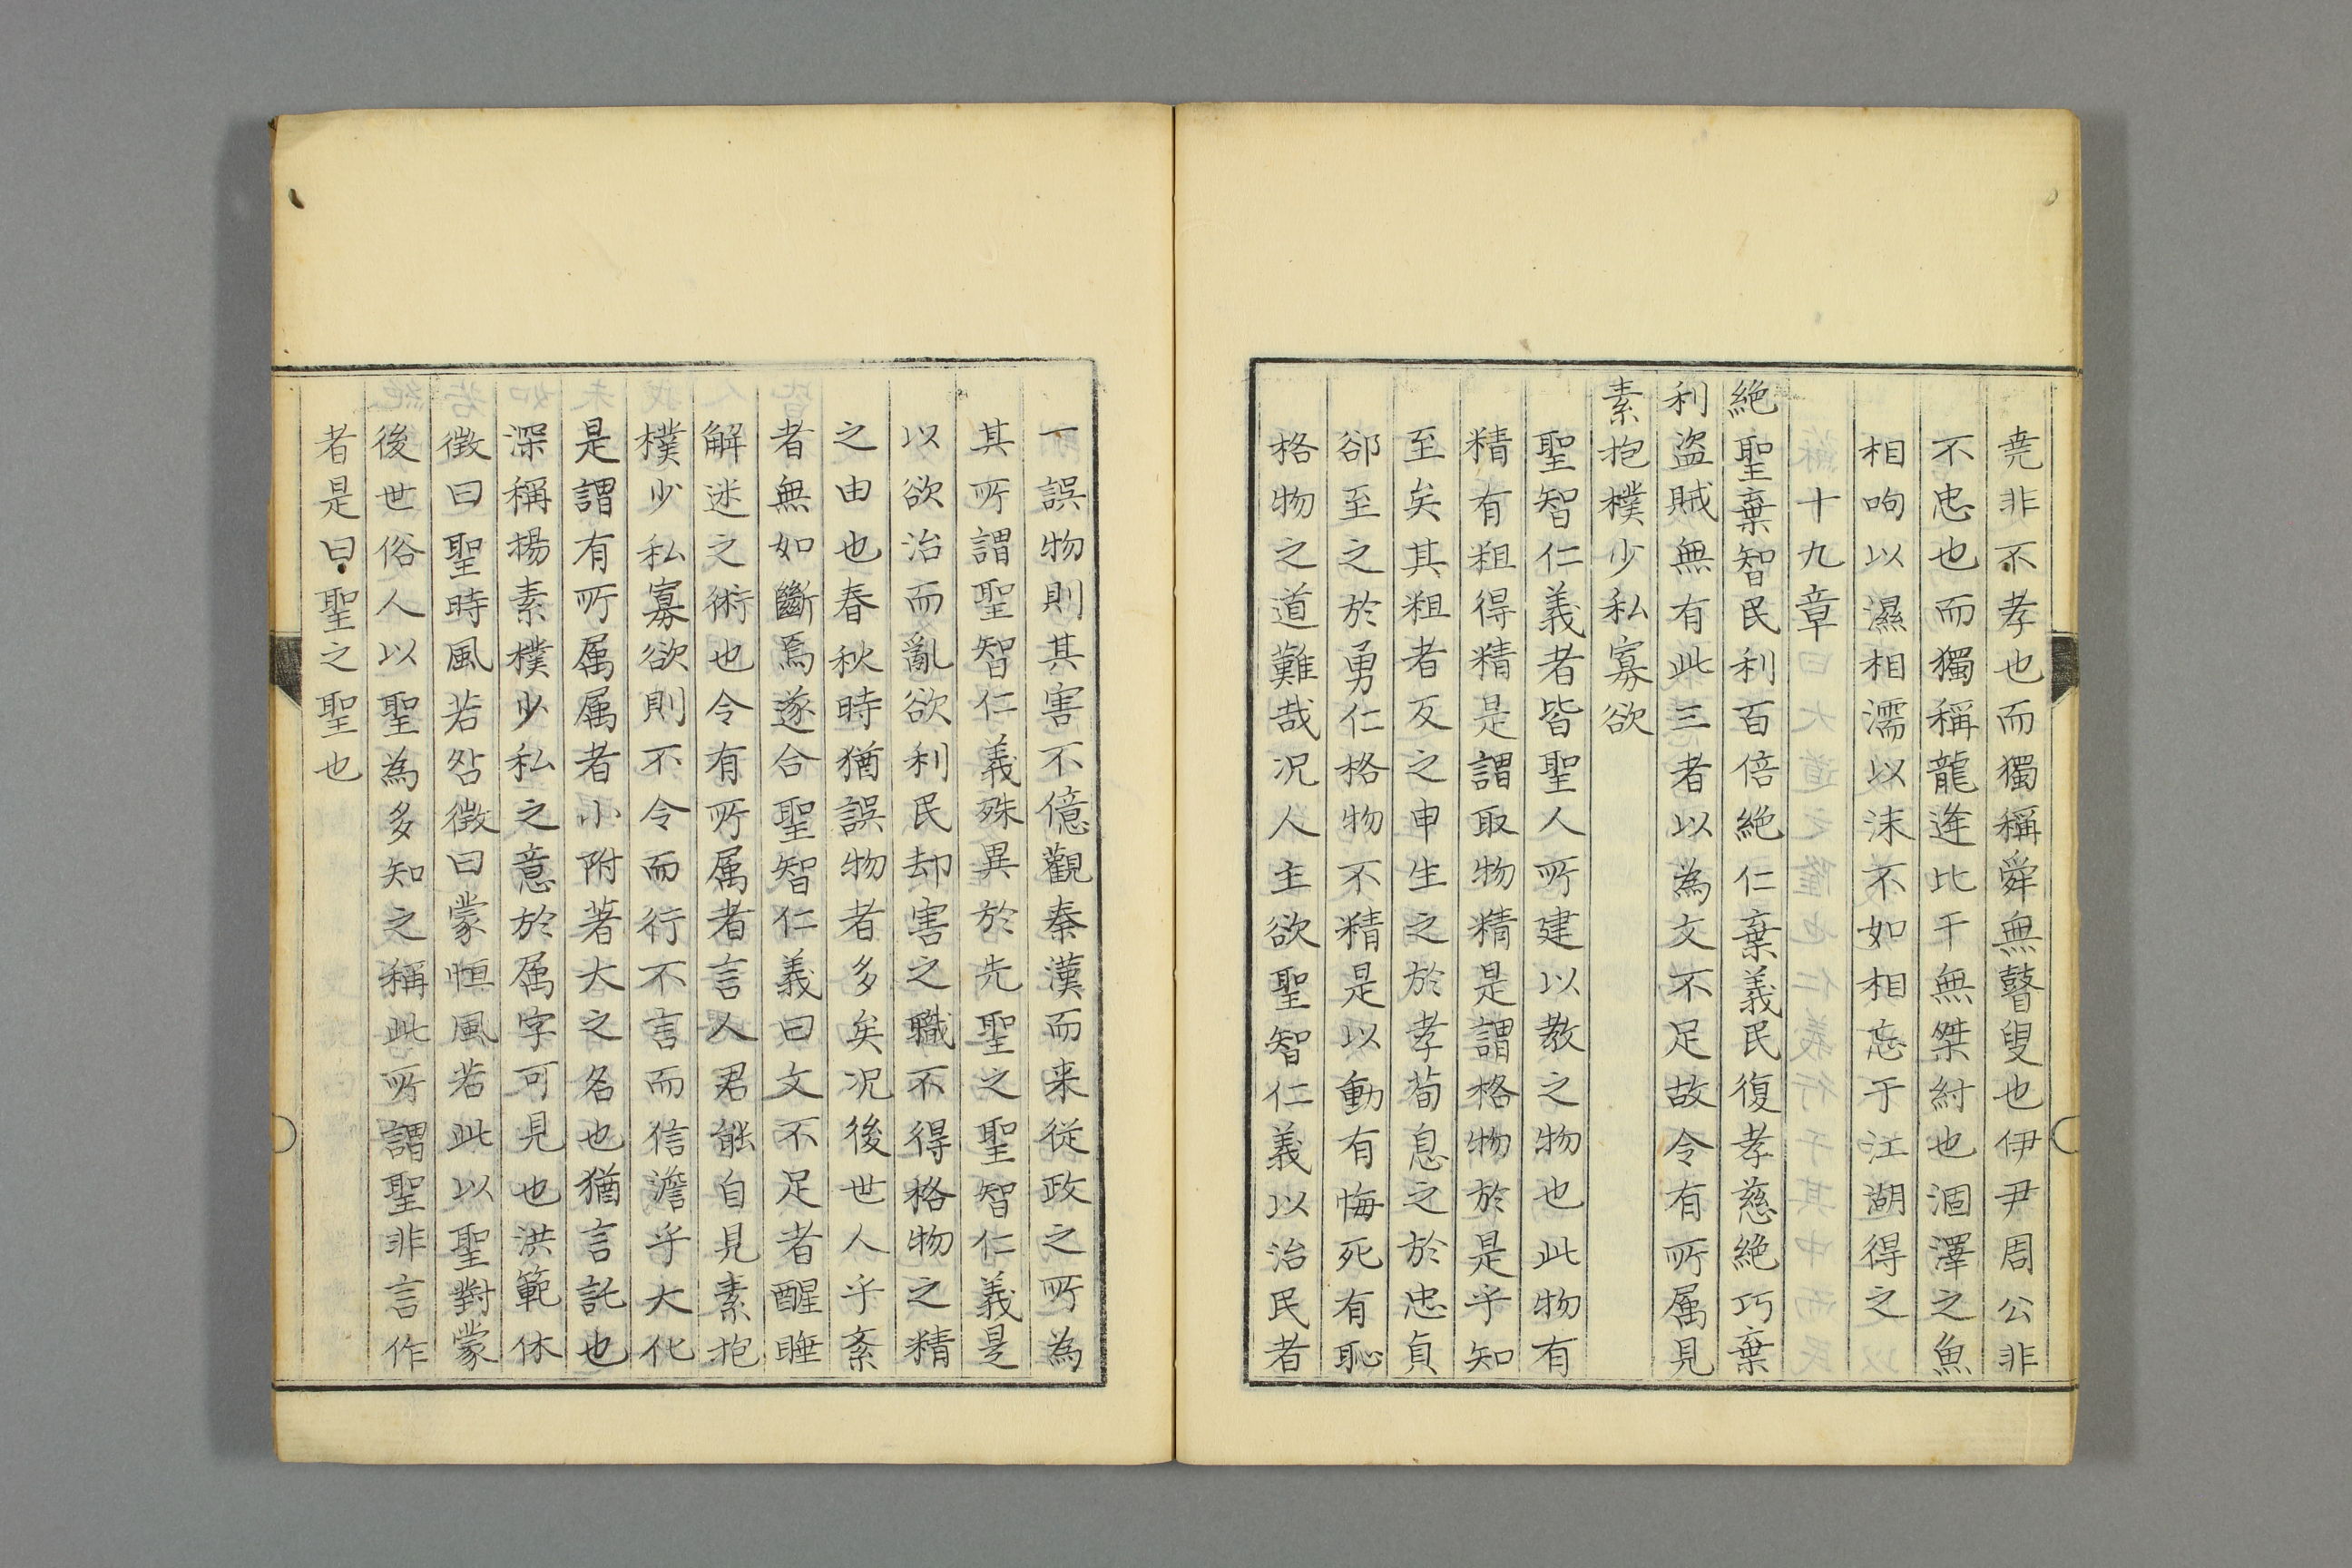 尭非不孝也而獨稱舜無瞽叟也伊尹周公非
不忠也而獨稱龍逄比干無桀紂也涸澤之魚
相呴以濕相濡以沫不如相忘于江湖得之
十九章
絶聖棄智民利百倍絶仁棄義民復孝慈絶巧棄
利盗賊無有此三者以為文不足故令有所属見
素抱樸少私寡欲
聖智仁義者皆聖人所建以教之物也此物有
精有粗得精是謂取物精是謂格物於是乎知
至矣其粗者反之申生之於孝荀息之於忠貞
郤至之於勇仁格物不精是以動有悔死有恥
格物之道難哉况人主欲聖智仁義以治民者
一誤物則其害不億觀秦漢而来従政之所為
其所謂聖智仁義殊異於先聖之聖智仁義是
以欲治而亂欲利民却害之職不得格物之精
之由也春秋時猶誤物者多矣况後世人乎紊
者無如斷焉遂合聖智仁義曰文不足者醒睡
解迷之術也令有所属者言人君能自見素抱
樸少私寡欲則不令而行不言而信澹乎大化
是謂有所属属者小附著大之名也猶言託也
深稱揚素樸少私之意於属字可見也洪範休
徴曰聖時風若咎徴曰蒙恒風若此以聖對蒙
後世俗人以聖為多知之稱此所謂聖非言作
者是曰聖之聖也